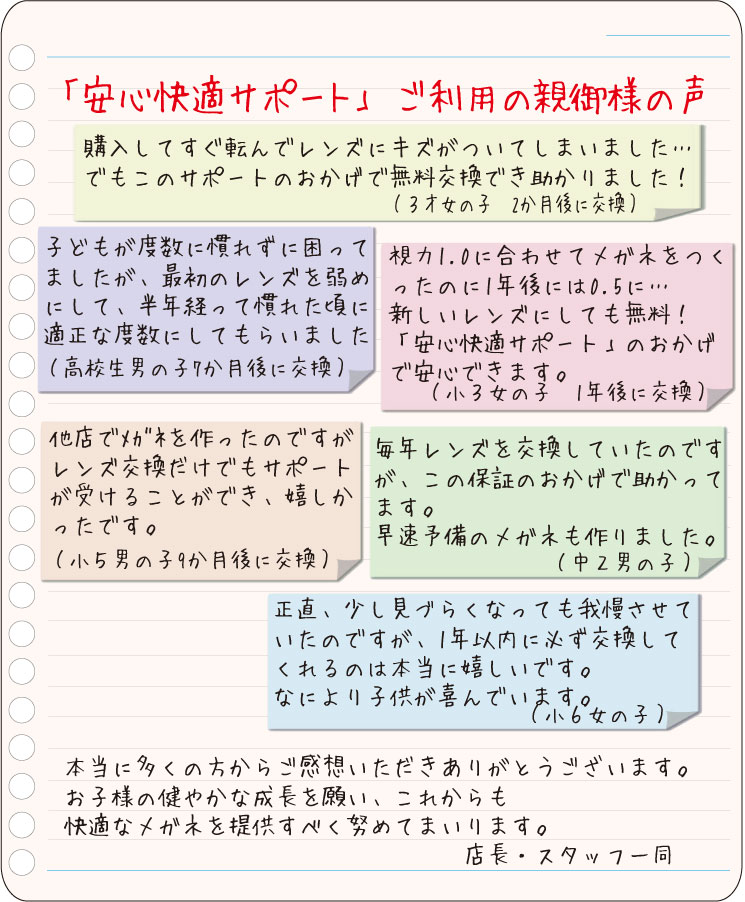 「安心快適サポート」ご利用の親御様の声
購入してすぐ転んでレンズにキズがついてしまいました…
でもこのサポートのおかげで無料交換でき助かりました！
（３才女の子　2か月後に交換）
子どもが度数に慣れずに困って
ましたが、最初のレンズを弱め
にして、半年経って慣れた頃に
適正な度数にしてもらいました
（高校生男の子7か月後に交換）
視力1.0に合わせてメガネをつく
ったのに1年後には0.5に…
新しいレンズにしても無料！
「安心快適サポート」のおかげ
で安心できます。
（小３女の子　1年後に交換）
他店でﾒｶﾞﾈを作ったのですが
レンズ交換だけでもサポート
が受けることができ、嬉しか
ったです。
（小５男の子9か月後に交換）
毎年レンズを交換していたのです
が、この保証のおかげで助かって
ます。
早速予備のメガネも作りました。
（中２男の子）
正直、少し見づらくなっても我慢させて
いたのですが、1年以内に必ず交換して
くれるのは本当に嬉しいです。
なにより子供が喜んでいます。
（小６女の子）
本当に多くの方からご感想いただきありがとうございます。
お子様の健やかな成長を願い、これからも
快適なメガネを提供すべく努めてまいります。
店長・スタッフ一同